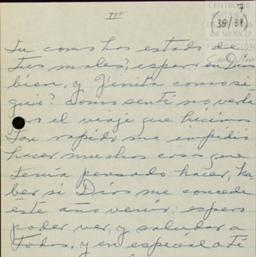 III
7
(38/39)
CENTRO
DE MEXICO
Tu como has estado de
tus males, espero en Dios
bien, y Jimita como si
gue? Como senti no verla
por el viaje que hicimos
tan rapido, me impidio
hacer muchas cosas que
tenia pensado hacer, ha
ber si Dios me concede
este año venir; espero
poder ver, y saludar a
todos, y en especial a ti